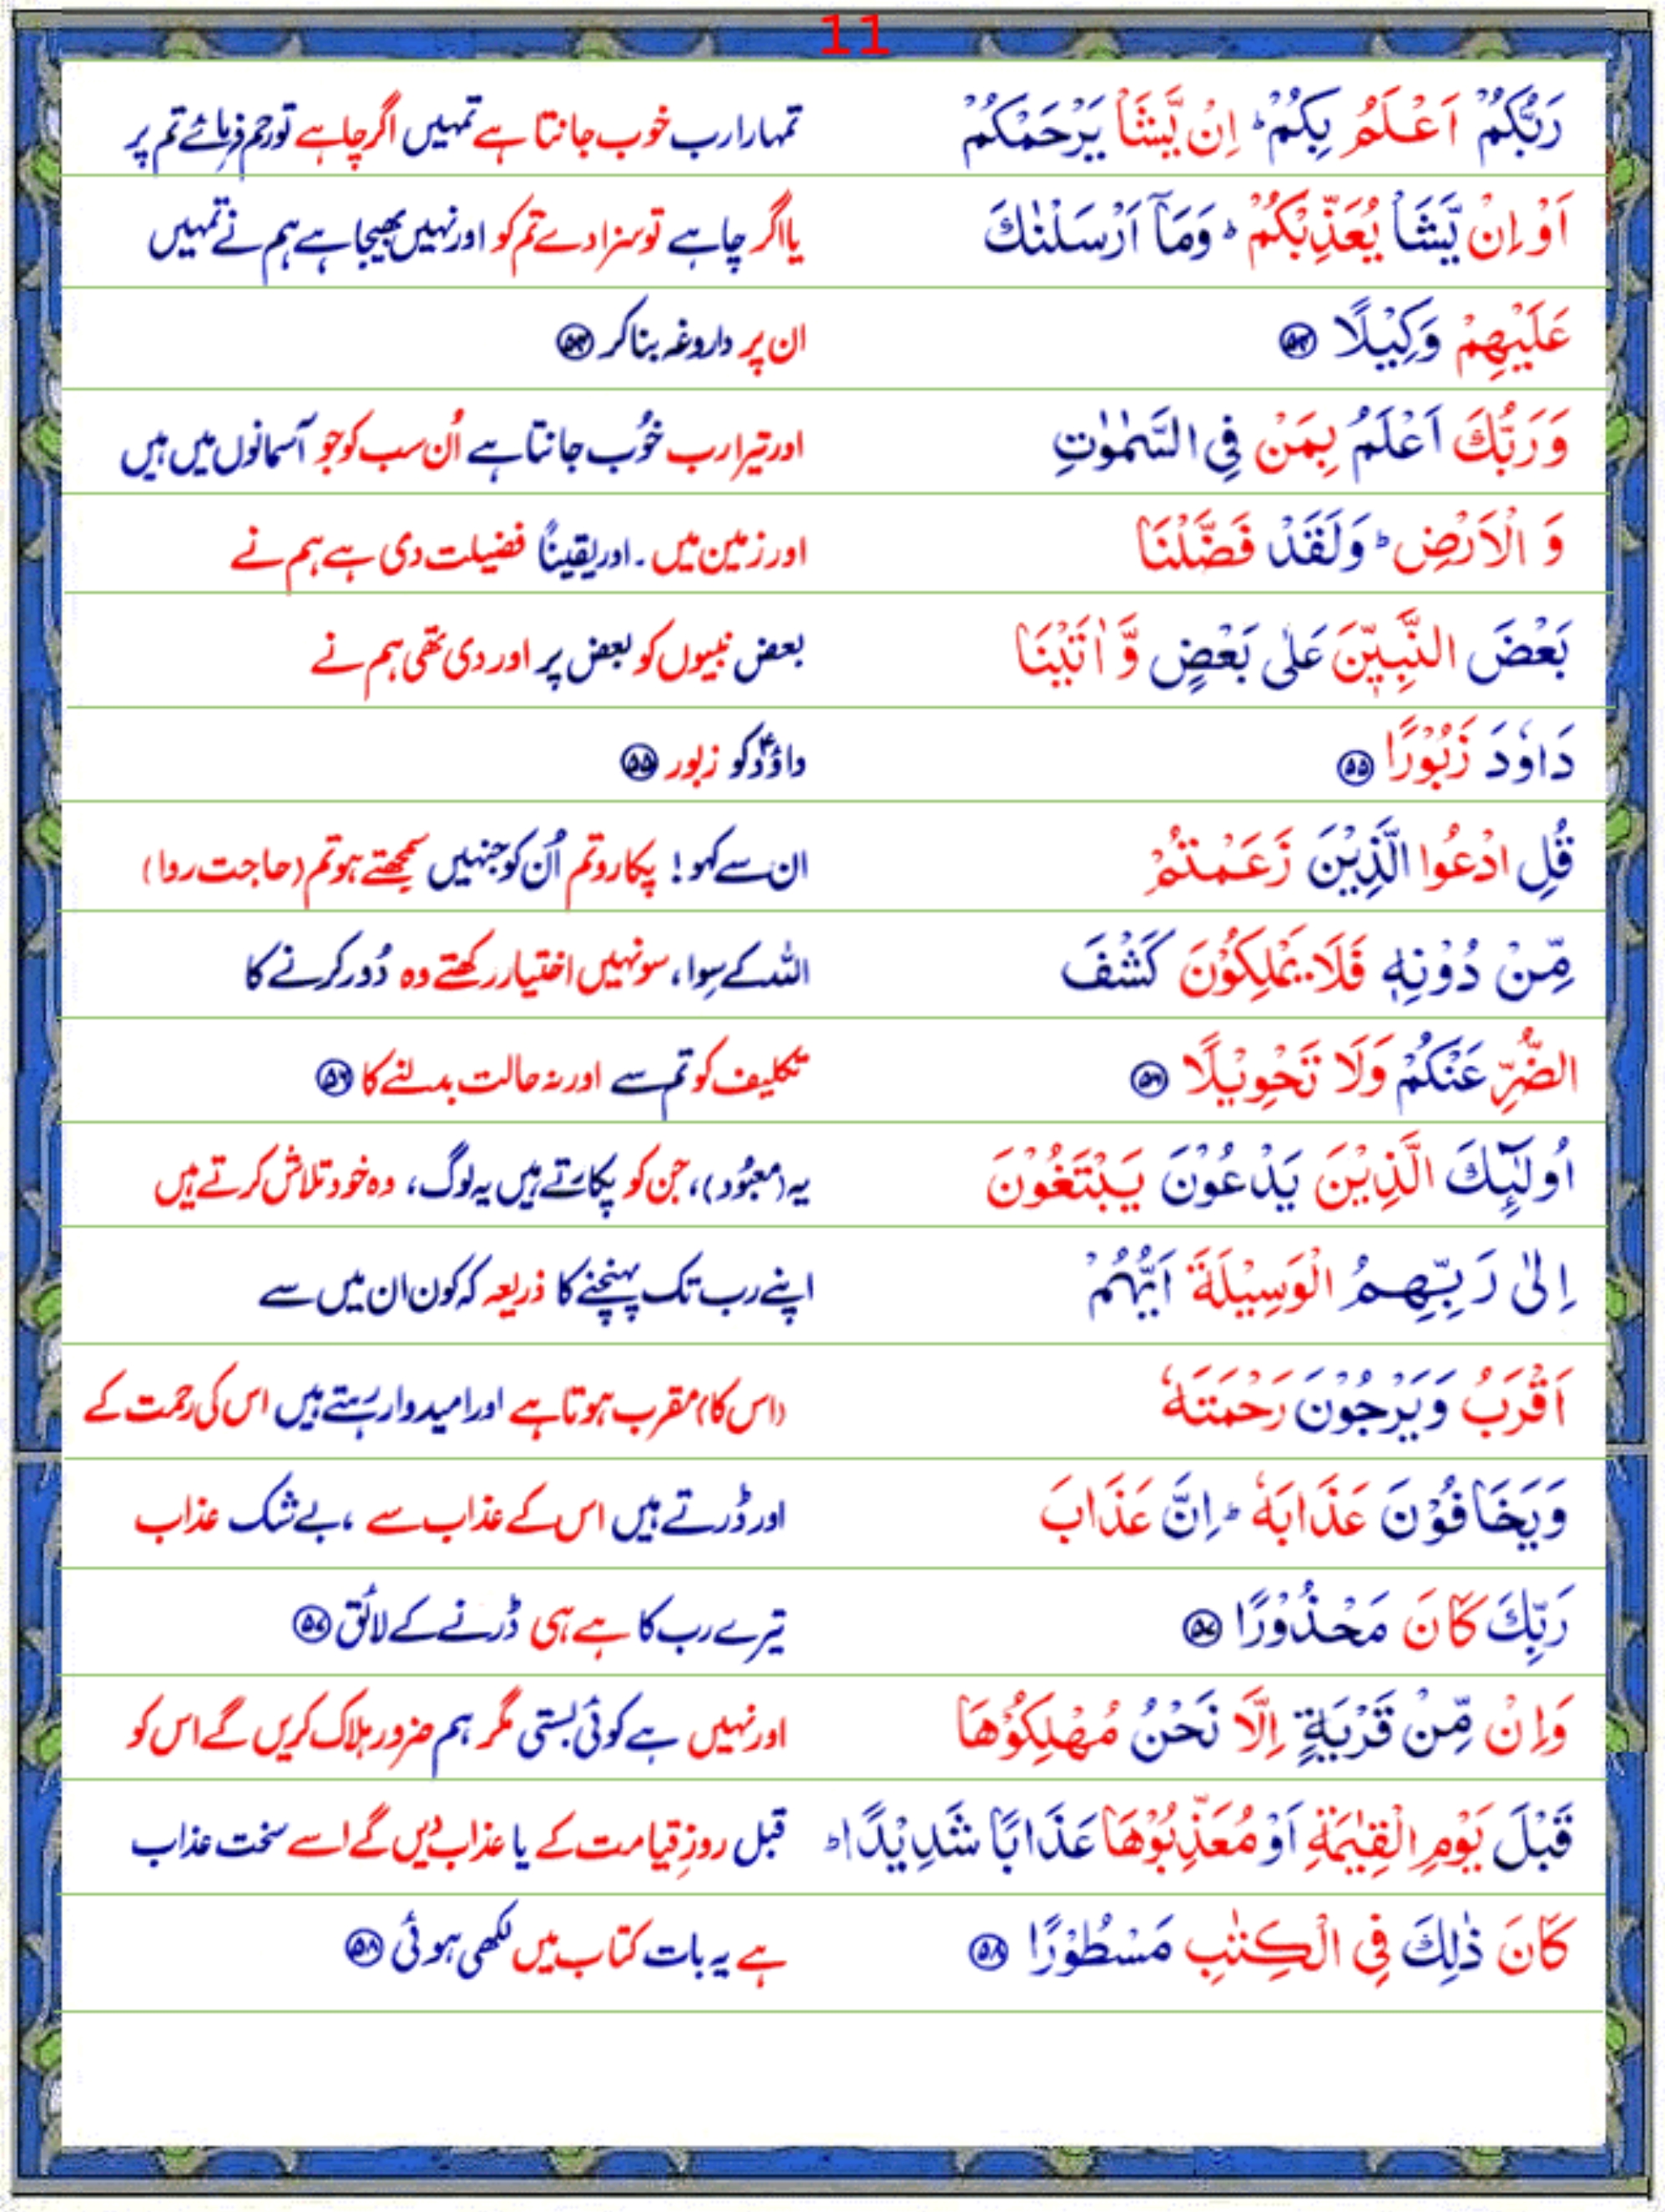 11
رَبُّكُمْ اَعْلَمُ بِكُمْ ؕ اِنْ يَّشَاْ يَرْحَمْكُمْ تمہارا رب خوب جانتا ہے تمہیں اگر چاہے تو رحم فرمائے تم پر
اَوْ اِنْ يَّشَاْ يُعَذِّبْكُمْ ؕ وَمَاۤ اَرْسَلْنٰكَ یا اگر چاہے تو سزا دے تم کو اور نہیں بھیجا ہے ہم نے تمہیں
عَلَيْهِمْ وَكِيْلًا ۝۵۴ ان پر داروغہ بنا کر ۝۵۴
وَرَبُّكَ اَعْلَمُ بِمَنْ فِي السَّمٰوٰتِ اور تیرا رب خُوب جانتا ہے اُن سب کو جو آسمانوں میں ہیں
وَ الْاَرْضِ ؕ وَلَقَدْ فَضَّلْنَا اور زمین میں ۔ اور یقیناً فضیلت دی ہے ہم نے
بَعْضَ النَّبِيّٖنَ عَلٰى بَعْضٍ وَّ اٰتَيْنَا بعض نبیوں کو بعض پر اور دی تھی ہم نے
دَاوٗدَ زَبُوْرًا ۝۵۵ داؤدؑ کو زبور ۝۵۵
قُلِ ادْعُوا الَّذِيْنَ زَعَمْتُمْ ان سے کہو! پکارو تم اُن کو جنہیں سمجھتے ہو تم (حاجت روا)
مِّنْ دُوْنِهٖ فَلَا يَمْلِكُوْنَ كَشْفَ اللہ کے سِوا، سو نہیں اختیار رکھتے وہ دُور کرنے کا
الضُّرِّ عَنْكُمْ وَلَا تَحْوِيْلًا ۝۵۶ تکلیف کو تم سے اور نہ حالت بدلنے کا ۝۵۶
اُولٰٓئِكَ الَّذِيْنَ يَدْعُوْنَ يَبْتَغُوْنَ یہ (معبُود)، جن کو پکارتے ہیں یہ لوگ، وہ خود تلاش کرتے ہیں
اِلٰى رَبِّهِمُ الْوَسِيْلَةَ اَيُّهُمْ اپنے رب تک پہنچنے کا ذریعہ کہ کون ان میں سے
اَقْرَبُ وَيَرْجُوْنَ رَحْمَتَهٗ (اس کا) مقرب ہوتا ہے اور امیدوار رہتے ہیں اس کی رحمت کے
وَيَخَافُوْنَ عَذَابَهٗ ؕ اِنَّ عَذَابَ اور ڈرتے ہیں اس کے عذاب سے ، بے شک عذاب
رَبِّكَ كَانَ مَحْذُوْرًا ۝۵۷ تیرے رب کا ہے ہی ڈرنے کے لائق ۝۵۷
وَاِنْ مِّنْ قَرْيَةٍ اِلَّا نَحْنُ مُهْلِكُوْهَا اور نہیں ہے کوئی بستی مگر ہم ضرور ہلاک کریں گے اس کو
قَبْلَ يَوْمِ الْقِيٰمَةِ اَوْ مُعَذِّبُوْهَا عَذَابًا شَدِيْدًا ؕ قبل روزِ قیامت کے یا عذاب دیں گے اسے سخت عذاب
كَانَ ذٰلِكَ فِي الْكِتٰبِ مَسْطُوْرًا ۝۵۸ ہے یہ بات کتاب میں لکھی ہوئی ۝۵۸